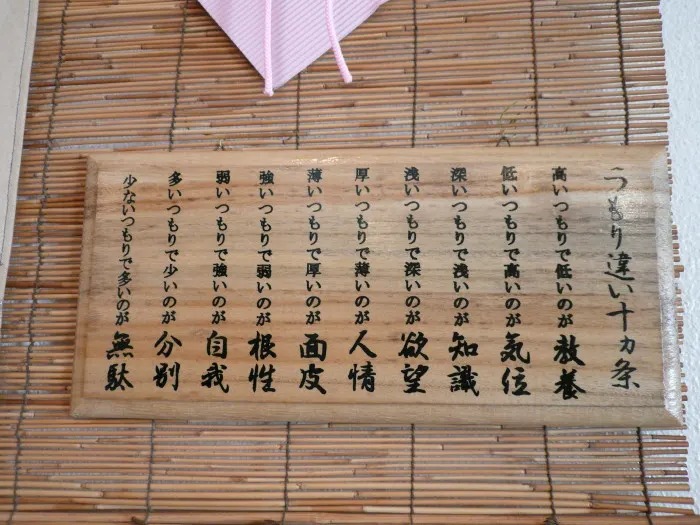 つもり違い十カ条
高いつもりで低いのが教養
低いつもりで高いのが気位
深いつもりで浅いのが知識
浅いつもりで深いのが欲望
厚いつもりで薄いのが人情
薄いつもりで厚いのが面皮
強いつもりで弱いのが根性
弱いつもりで強いのが自我
多いつもりで少いのが分別
少ないつもりで多いのが無駄